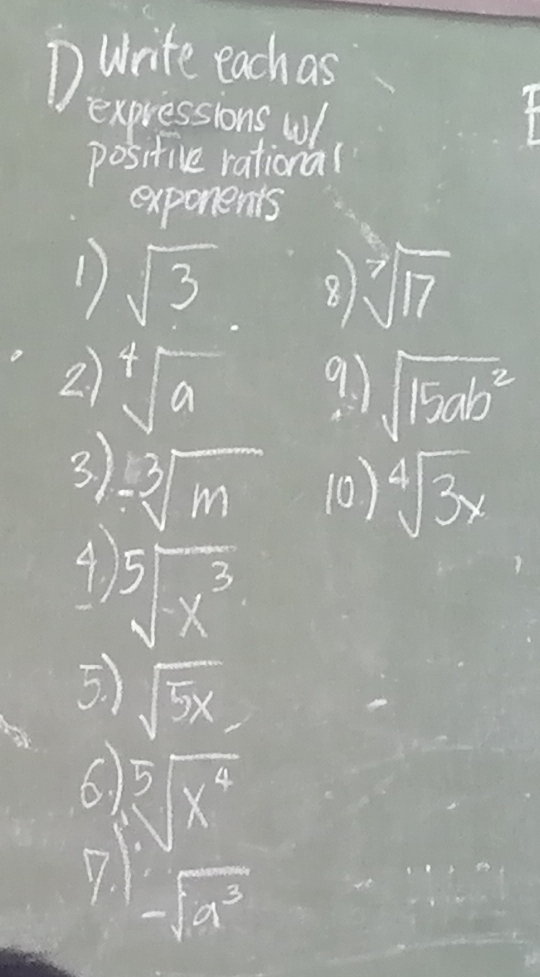 I) Write each as
expressions w/
positive rational
exponents
1) √3
2.) ⁴√a
3.) -³√m
4.) ⁵√-x³
5.) √5x
6.) ⁵√x⁴
7.) -√a³
8.) ⁷√17
9.) √15ab²
10.) ⁴√3x